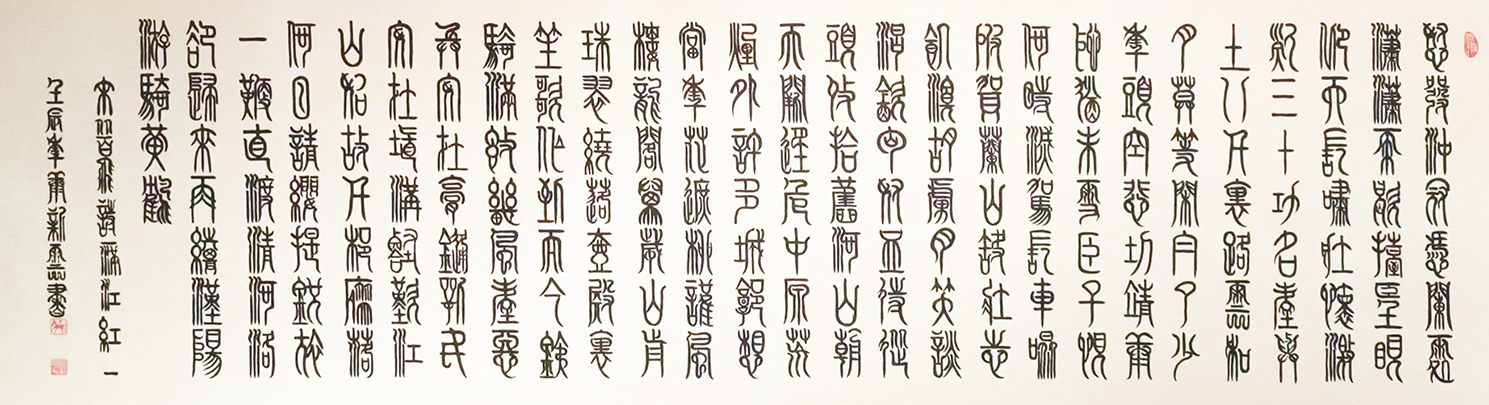 怒發沖冠憑闌處
瀟瀟雨歇擡望眼
仰天長嘯壯懷激
烈三十功名塵與
土八千里路雲和
月莫等閑白了少
年頭空悲切靖康
恥猶未雪臣子恨
何時滅駕長車踏
破賀蘭山缺壯志
飢湌胡虜肉笑談
渴飲匈奴血待從
頭收拾舊河山朝
天闕遙望中原荒
煙外許多城郭想
當年花遮柳護鳳
樓龍閣萬歲山前
珠翠繞蓬壺殿裏
笙歌作到而今鐵
騎滿郊畿風塵惡
兵安在膏鋒鍔民
安在填溝壑歎江
山如故千村寥落
何日請纓提銳旅
一鞭直渡清河洛
卻歸來再續漢陽
游騎黃鶴
宋岳飛詩滿江紅一
壬辰年康新雲書